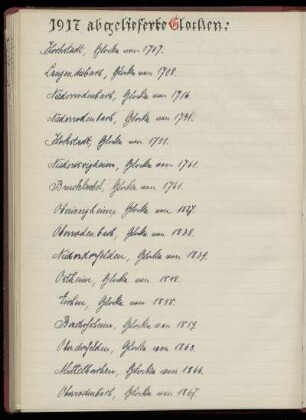 1917 abgelieferte Glocken:
Hochstadt, Glocke von 1707.
Langendiebach, Glocke von 1708.
Niederrodenbach, Glocke von 1716.
Niederrodenbach, Glocke von 1731.
Hochstadt, Glocke von 1731.
Niederissigheim, Glocke von 1761.
Bruchköbel, Glocke von 1761.
Oberissigheim Glocke von 1827.
Oberrodenbach, Glocke von 1838.
Niederdorfelden, Glocke von 1839.
Ostheim, Glocke von
Eichen, Glocke von 1855.
Bischofsheim, Glocke von 1859.
Oberdorfelden, Glocke von 1863.
Mittelbuchen, Glocke von 1866.
Oberrodenbach, Glocke von 1867.